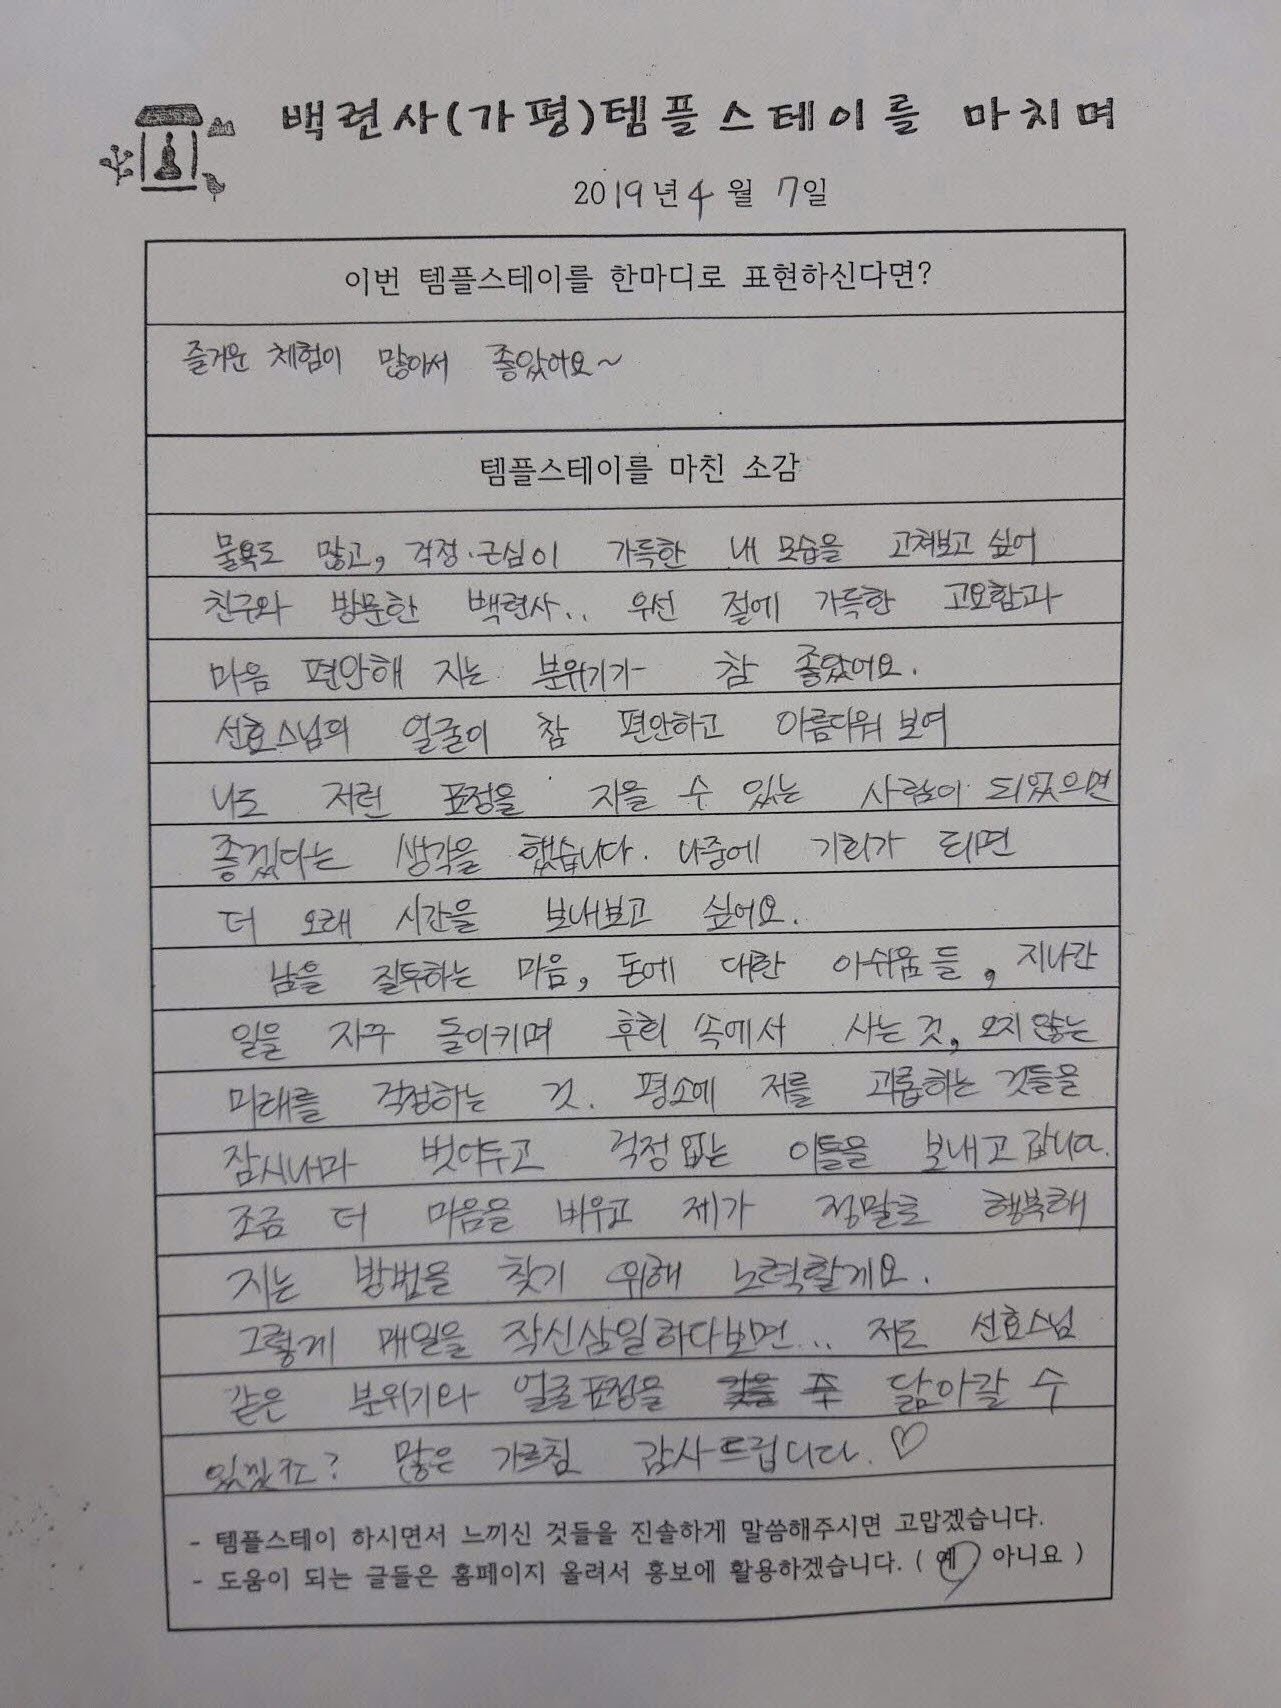 백련사(가평)템플스테이를 마치며
2019년 4월 7일
이번 템플스테이를 한마디로 표현하신다면?
즐거운 체험이 많아서 좋았어요~
템플스테이를 마친 소감
물욕도 많고, 걱정·근심이 가득한 내 모습을 고쳐보고 싶어
친구와 방문한 백련사.. 우선 절에 가득한 고요함과
마음 편안해 지는 분위기가 참 좋았어요.
선효스님의 얼굴이 참 편안하고 아름다워 보여
나도 저런 표정을 지을 수 있는 사람이 되었으면
좋겠다는 생각을 했습니다. 나중에 기회가 되면
더 오래 시간을 보내보고 싶어요.
남을 질투하는 마음, 돈에 대한 아쉬움들, 지나간
일을 자꾸 돌이키며 후회 속에서 사는 것, 오지 않는
미래를 걱정하는 것. 평소에 저를 괴롭하는 것들을
잠시나마 벗어두고 걱정없는 이틀을 보내고 갑니다.
조금 더 마음을 비우고 제가 정말로 행복해
지는 방법을 찾기 위해 노력할게요.
그렇게 매일을 작신삼일하다보면... 저도 선효스님
같은 분위기와 얼굴표정을 닮아갈 수
있겠죠? 많은 가르침 감사드립니다. ♡
- 템플스테이 하시면서 느끼신 것들을 진솔하게 말씀해주시면 고맙겠습니다.
- 도움이 되는 글들은 홈페이지 올려서 홍보에 활용하겠습니다. ( 예 아니요 )